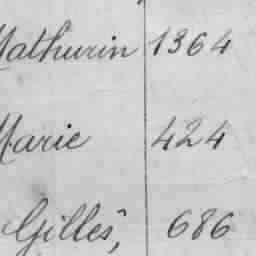 Mathurin 1364
Marie 424
Gilles, 686